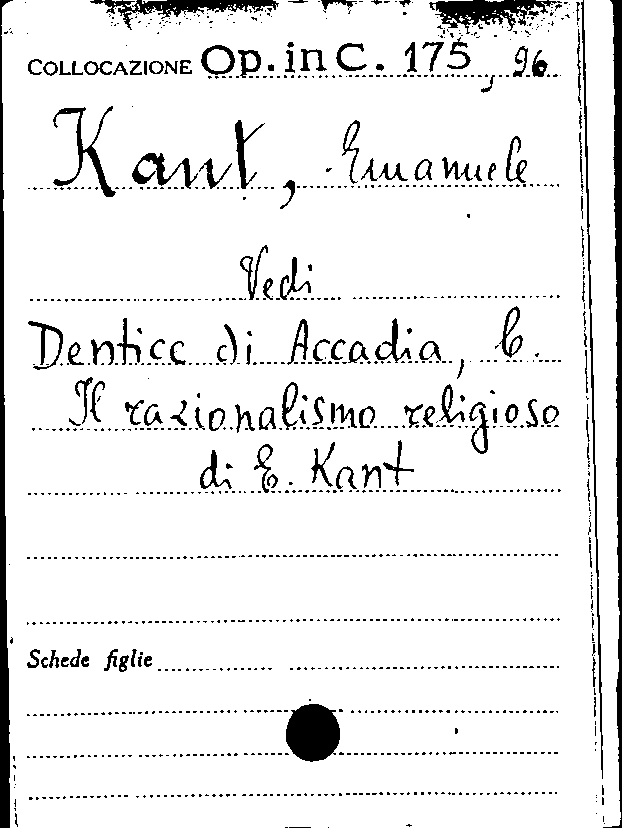 COLLOCAZIONE Op. in C. 175, 96
Kant, Emanuele
Vedi
Dentice di Accadia, C.
Il razionalismo religioso
di E. Kant
Schede figlie